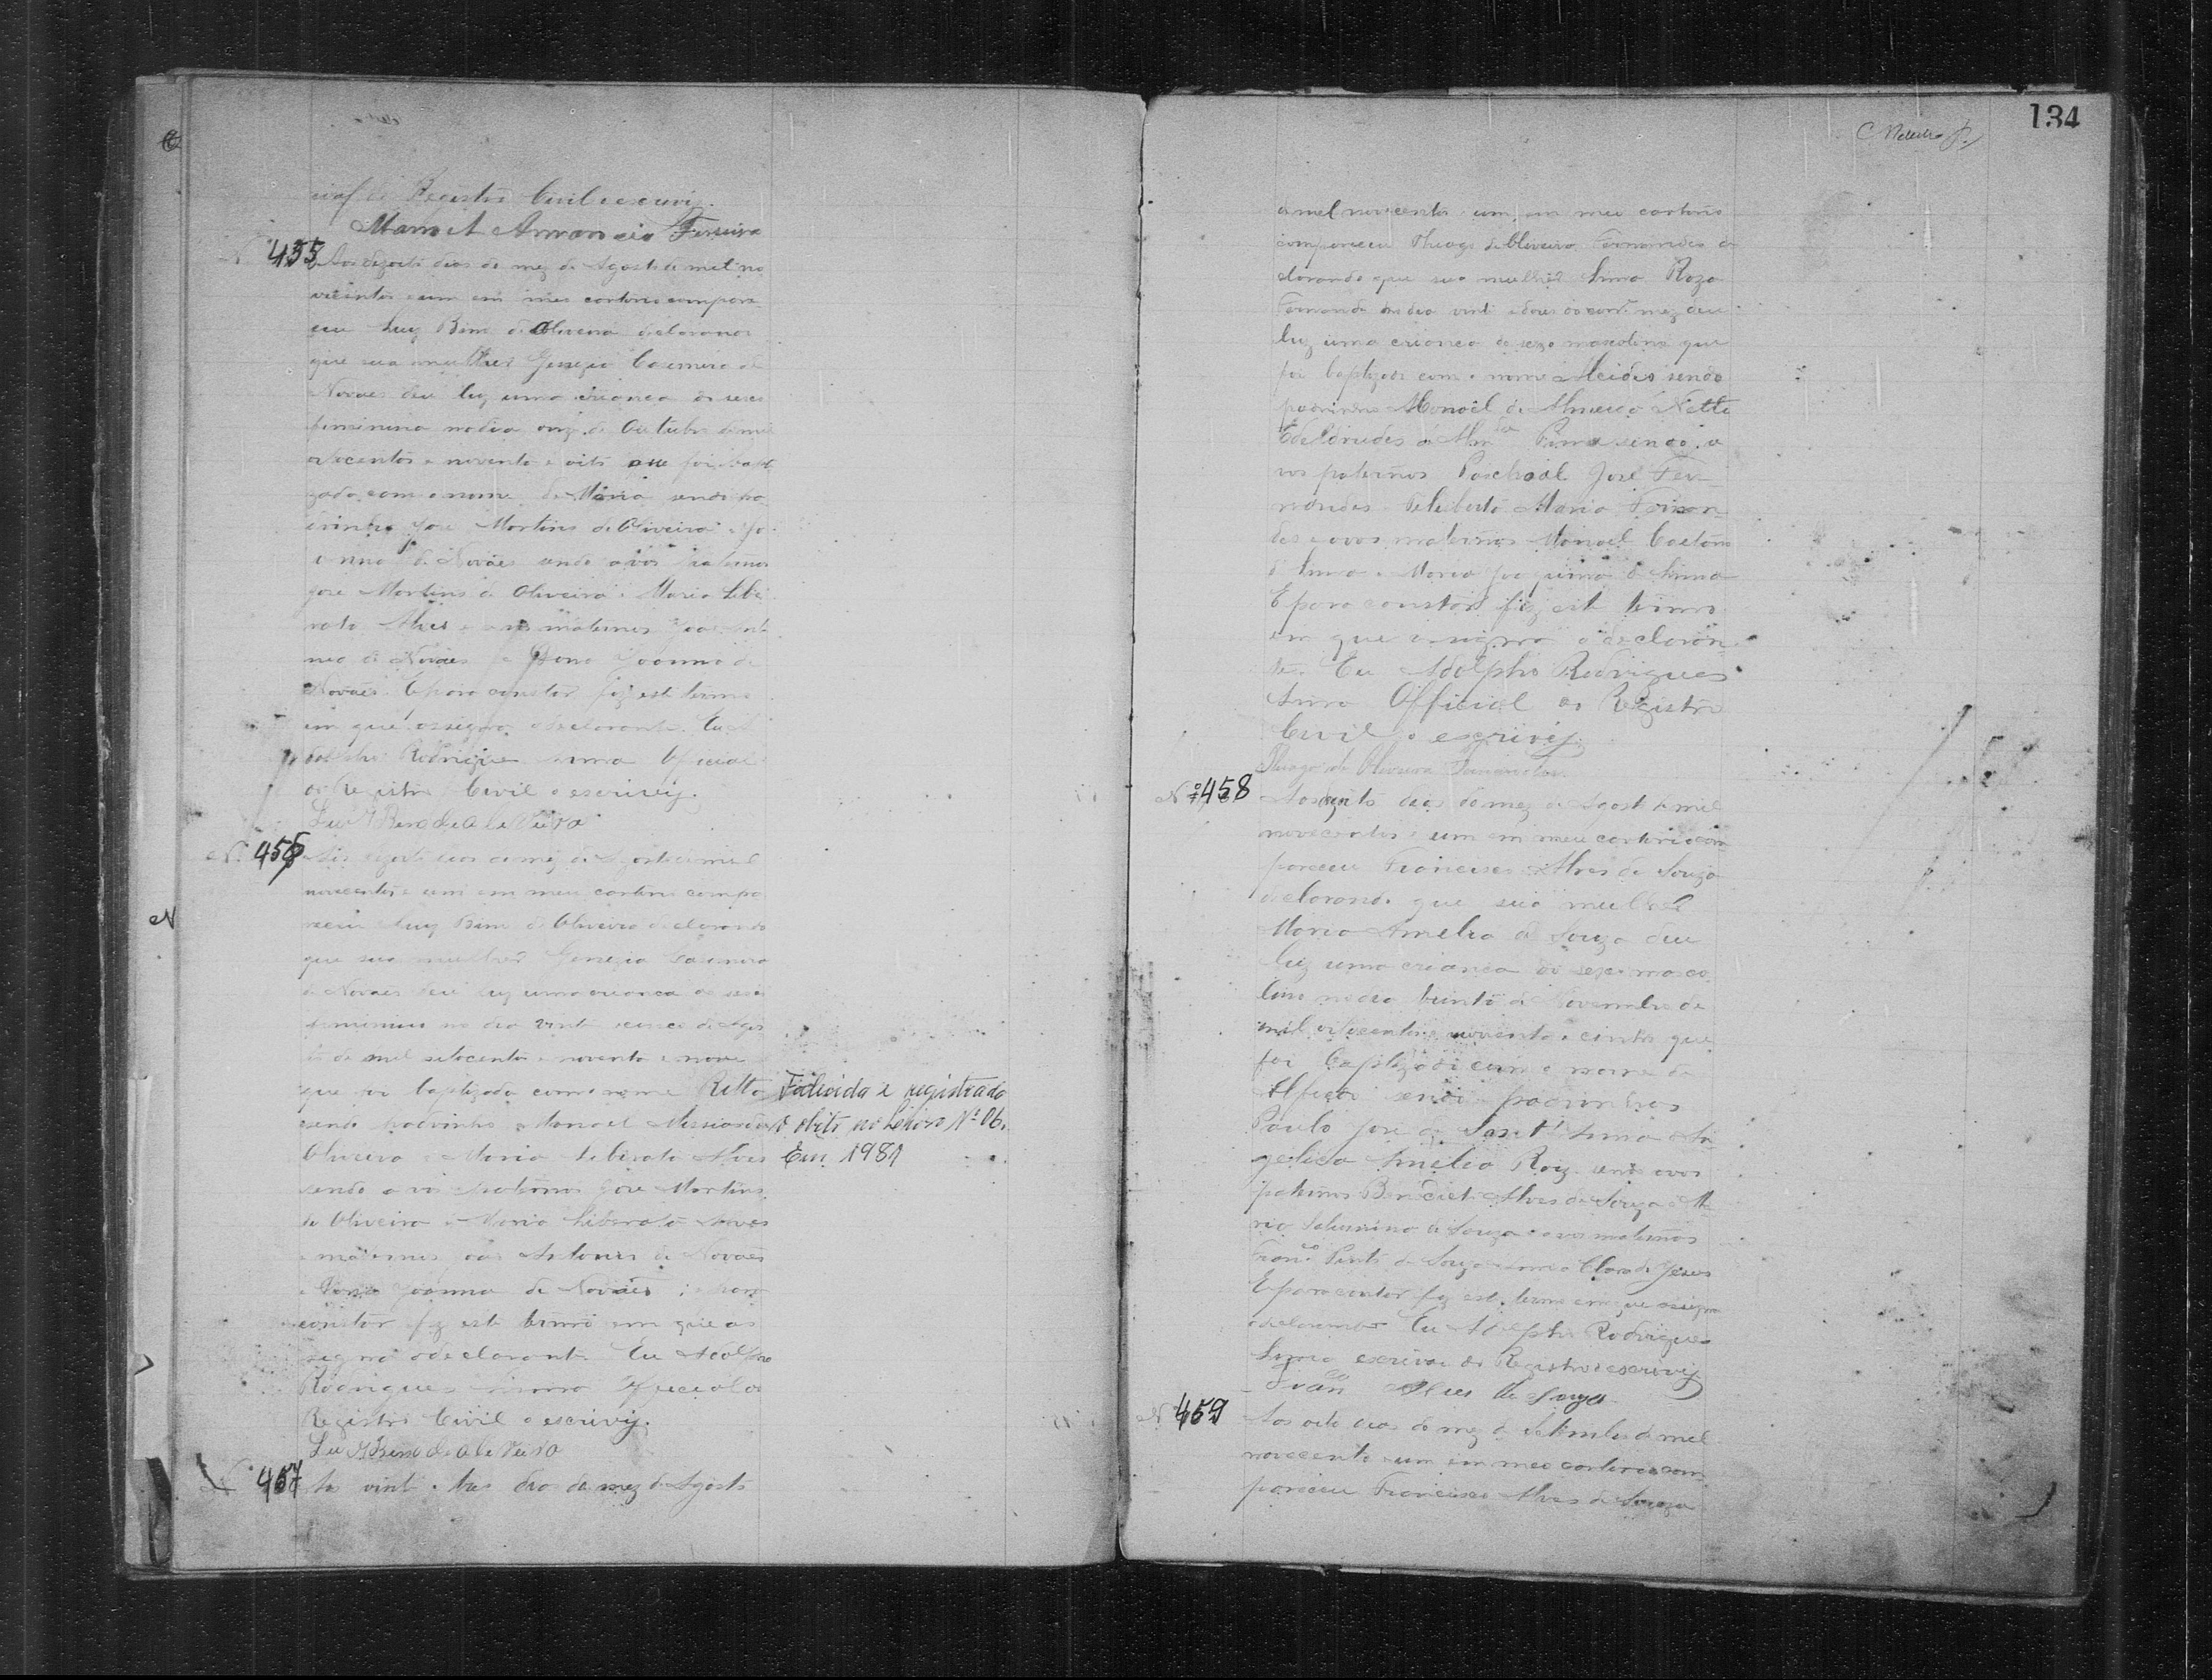 do Registro Civil o escrevij.
Manoel Amancio Ferreira
455
Aos dezoito dias do mez de Agosto de mil no
vecentos e um em meu cartorio compare
ceu Luiz Bim de Oliveira declarando
que sua mulher Genezia Casemira de
Novaes deu luz uma criança do sexo
feminino no dia onze de Outubro de mil
oitocentos e noventa e oito que foi bapti
zada com o nome de Maria sendo pa
drinho José Martins de Oliveira e Jo
anna de Novaes sendo avós paternos
José Martins de Oliveira e Maria Libe
rata Alves e avós maternos João Anto
nio de Novaes e Dona Joanna de
Novaes. E para constar fiz este termo
em que assigna o declarante. Eu A
dolpho Rodrigues Lima Official
do Registro Civil o escrevij.
Luiz Bim de Oliveira
Nº 456
Aos dezoito dias do mez de Agosto de mil
novecentos e um em meu cartorio compa
receu Luiz Bim de Oliveira declarando
que sua mulher Genezia Casemira
de Novaes deu luz uma criança do sexo
feminino no dia vinte e cinco de Agos
to de mil oitocentos e noventa e nove
que foi baptizada com o nome Ritta
sendo padrinho Manoel Messias de
Oliveira e Maria Liberata Alves
sendo avós paternos José Martins
de Oliveira e Maria Liberata Alves
e maternos João Antonio de Novaes
e Dona Joanna de Novaes; e para
constar fiz este termo em que as
signa o declarante. Eu Adolpho
Rodrigues Lima Official do
Registro Civil o escrevij.
Luiz Bim de Oliveira
Falecida e registrado
o obito no Livro Nº 06.
Em 1981
Nº 457
Aos vinte e tres dia do mez de Agosto
134
de mil novecentos e um, em meu cartorio
compareceu Thiago de Oliveira Fernandes de
clarando que sua mulher Anna Roza
Fernandes no dia vinte e dois do corre mez deu
luz uma criança do sexo masculino que
foi baptizado com o nome Alcides sendo
padrinhos Manoel de Almeida Netto
sendo a
vos paternos Paschoal José Fer
nandes Feliberta Maria Fernan
des e avos maternos Manoel Caetano
de Lima e Maria Joaquina de Lima
E para constar fiz este termo
em que assigna o declaran
te. Eu Adolpho Rodrigues
Lima Official do Registro
Civil o escrevij.
Thiago de Oliveira Fernandes
Nº 458
Aos oito dias do mez de Agosto de mil
novecentos e um em meu cartorio com
pareceu Francisco Alves de Souza
declarando que sua mulher
Maria Amelia de Souza deu
luz uma criança do sexo mascu
lino no dia trinta de Novembro de
mil oitocentos e noventa e cinco que
foi baptizado com o nome de
sendo padrinhos
Paulo José de Lima e An
gelica Amelia Roiz sendo avos
paternos Benedicto Alves de Souza e Ma
ria Saturnina de Souza e avos maternos
Franco Pinto de Souza Clara de Jesus
E para constar fiz este termo em que assigna
o declarante Eu Adolpho Rodrigues
Lima escrivão do Registro o escrevij
Franco Alves de Souza
Nº 459
Aos oito dias do mez de Setembro de mil
novecentos e um em meu cartorio com
pareceu Francisco Alves de Souza